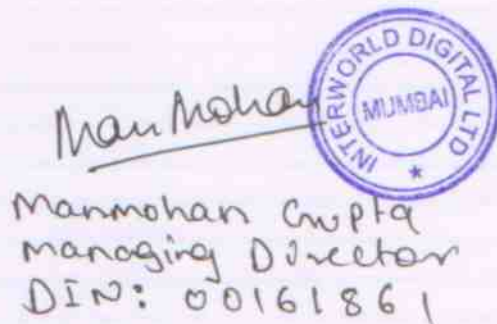 ManMohan
INTERWORLD DIGITAL LTD
MUMBAI
*
Manmohan Gupta
Managing Director
DIN: 00161861